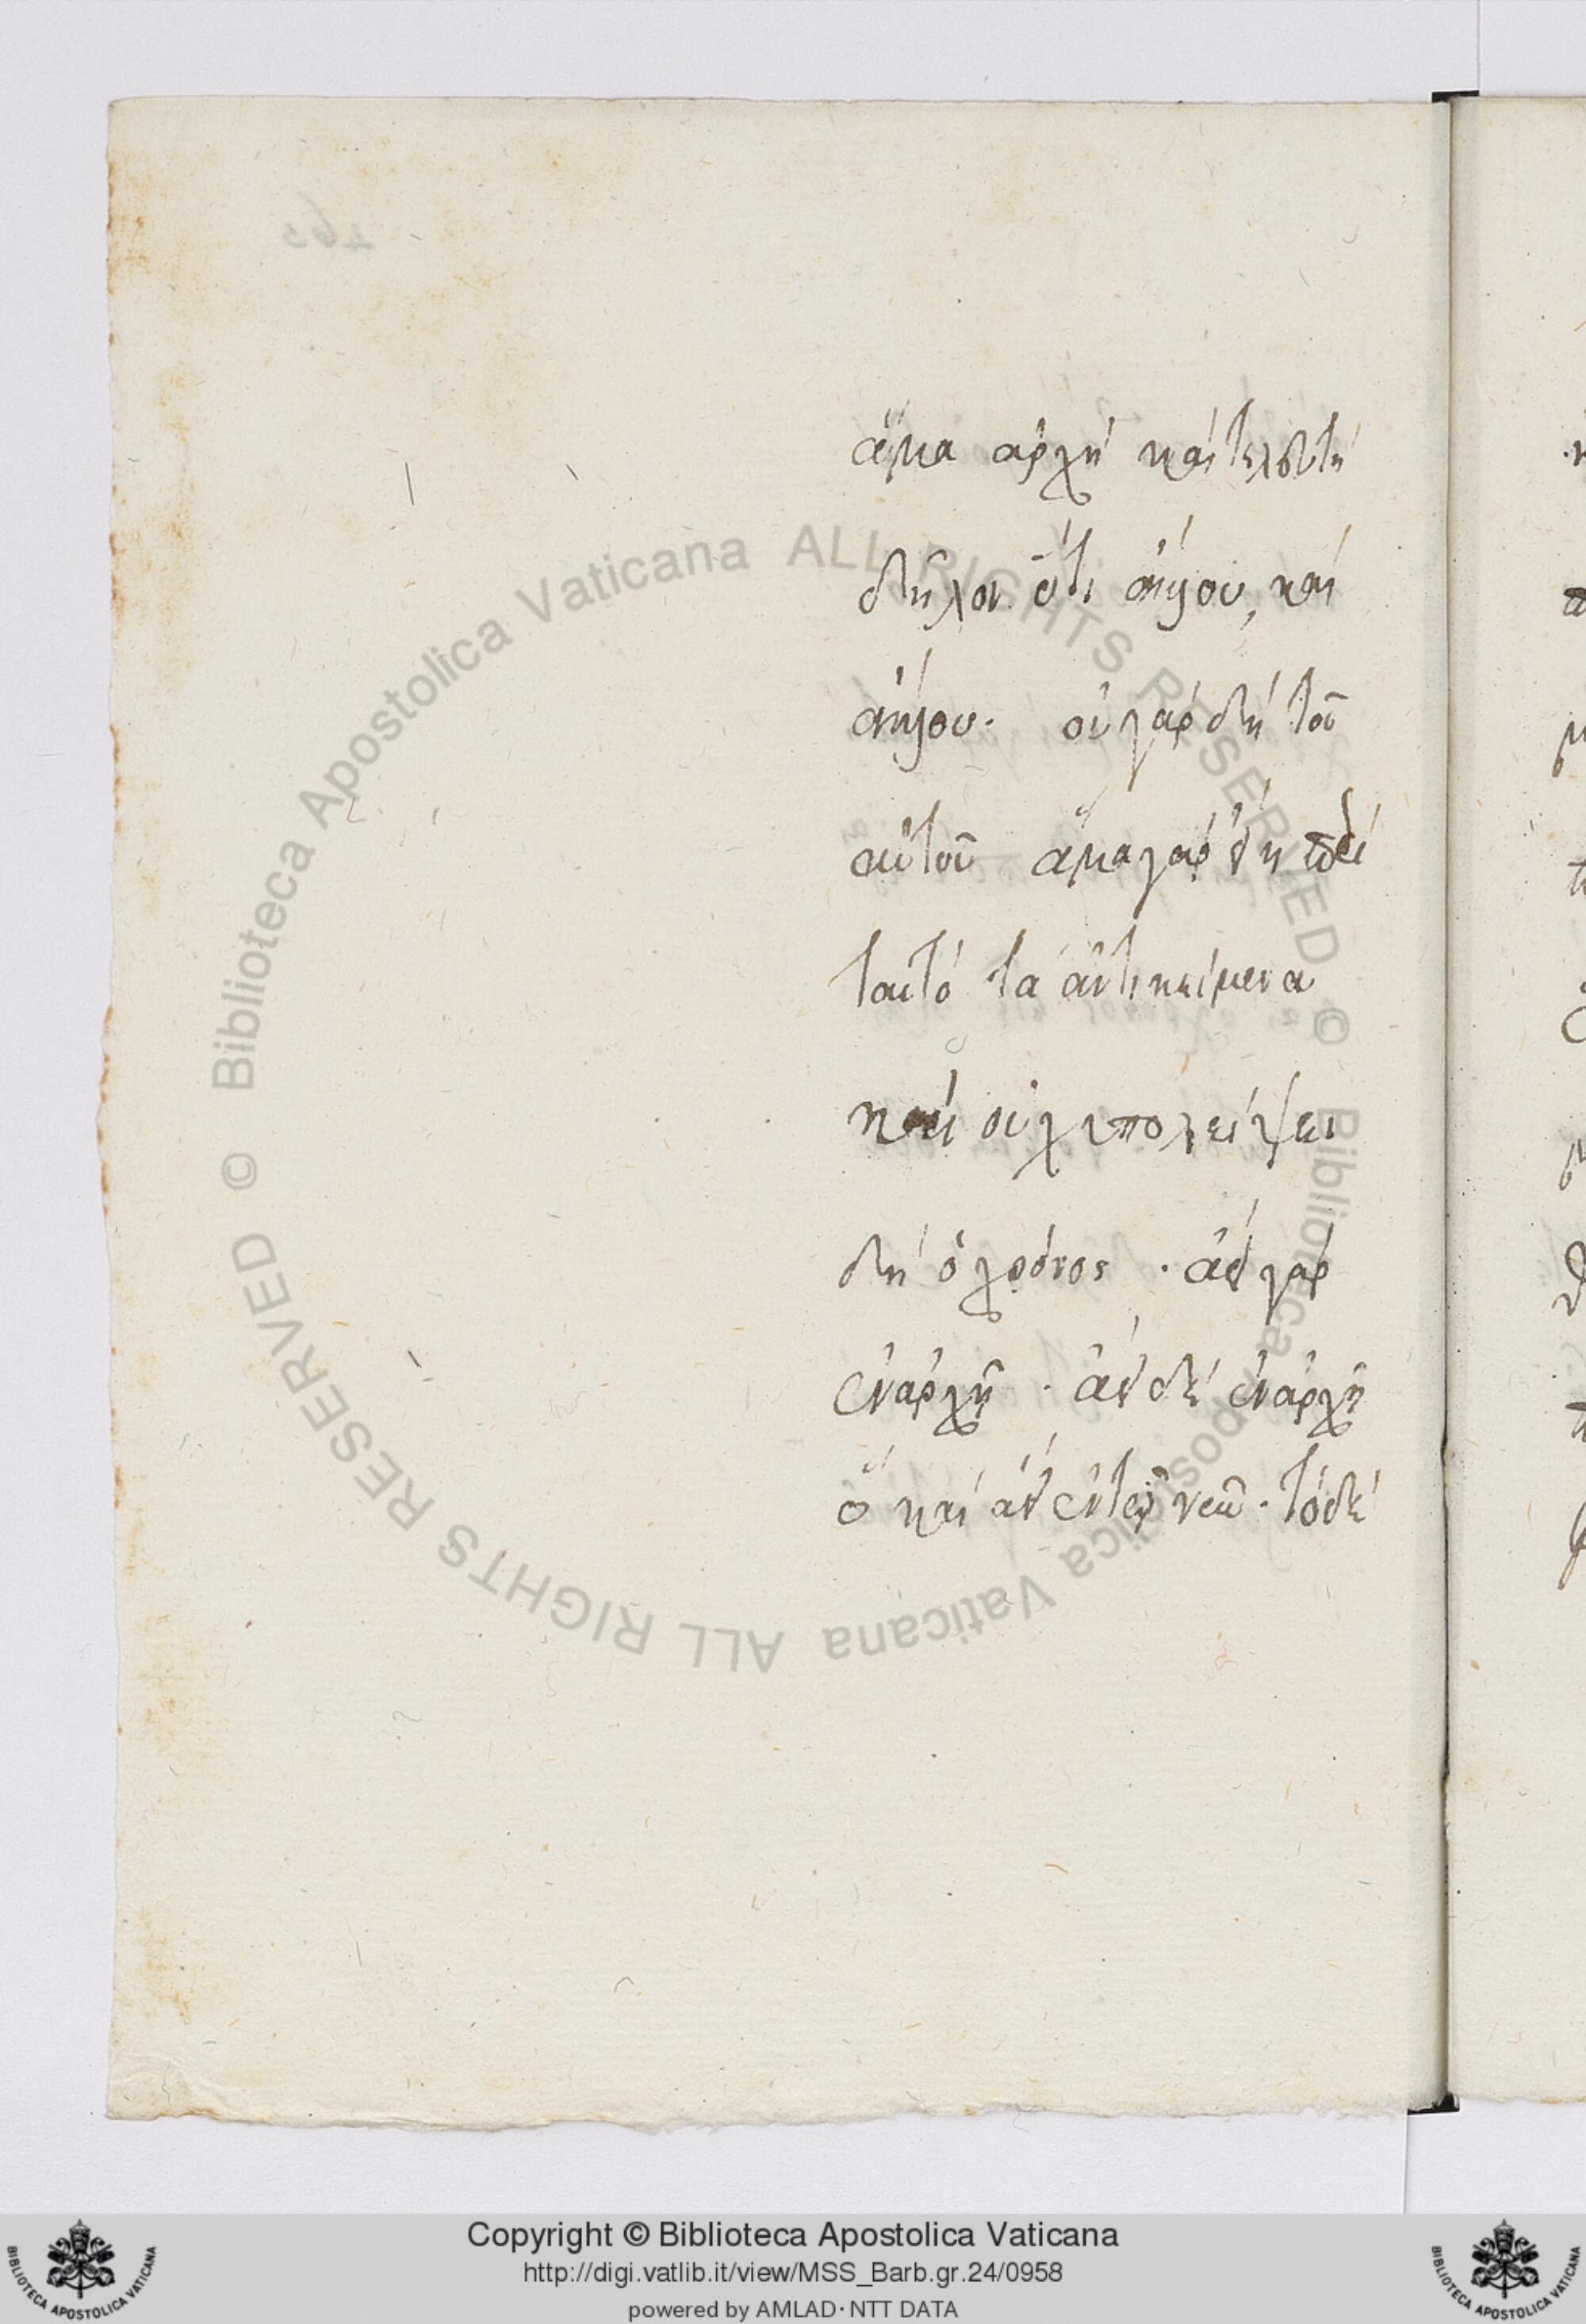 ἅμα ἀρχὴ καὶ τελευτὴ
δῆλον ὅτι ἄλλου, καὶ
ἄλλου. οὐ γὰρ δὴ τοῦ
αὐτοῦ ἅμα γὰρ ἂν
ταὐτὸ τὰ ἀντικείμενα
καὶ οὐχ ὑπολείψει
δὴ ὁ χρόνος . ἀεὶ γὰρ
ἐν ἀρχῇ . ἀεὶ δὲ ἐν ἀρχῇ
ὁ καὶ ἀεὶ . τὸ δὲ
© Biblioteca Apostolica Vaticana ALL RIGHTS RESERVED © Biblioteca Apostolica Vaticana ALL RIGHTS RESERVED
Copyright © Biblioteca Apostolica Vaticana
http://digi.vatlib.it/view/MSS_Barb.gr.24/0958
powered by AMLAD·NTT DATA
BIBLIOTECA APOSTOLICA VATICANA
BIBLIOTECA APOSTOLICA VATICANA